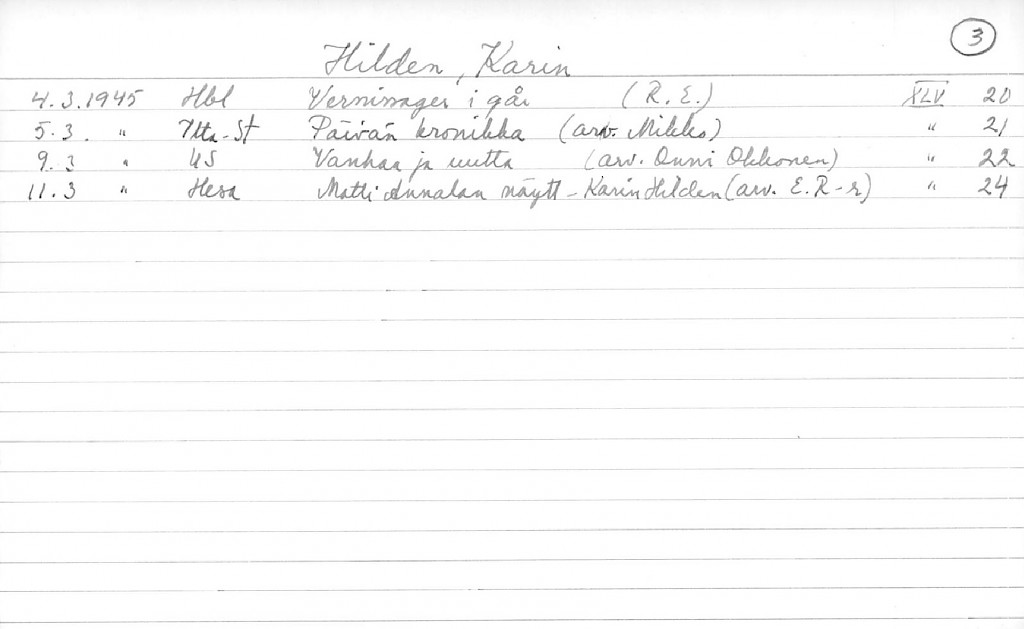 3
Hilden, Karin
4.3.1945 Hbl Vernissager i går (R.E.) XLV 20
5.3. " Ilta-St Päivän kronikka (arv. Mikko) " 21
9.3 " US Vanhaa ja uutta (arv. Onni Okkonen) " 22
11.3 " Hesa Matti Annalan näytt - Karin Hilden (arv. E.R-r) " 24